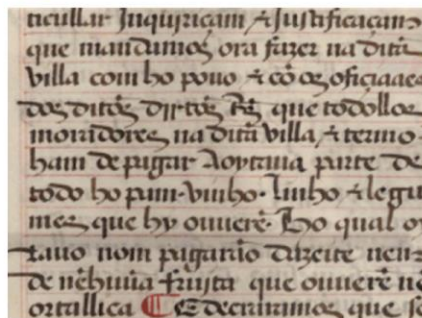 ticullar Inquiriçam & Justificaçam
que mandamos ora fazer na dita
villa com ho pouo & cõ os ofiçiaaes
dos ditos dirtos Rs que todollos
moradores na dita villa & termo
ham de pagar Aoytaua parte de
todo ho pam · vinho · linho & legu
mes que hy ouuere. Ho qual oy
tauo nom pagarão dizeite nem
de nẽhuũa fruita que ouuerẽ nẽ
ortallica ¶ E decraramos que se